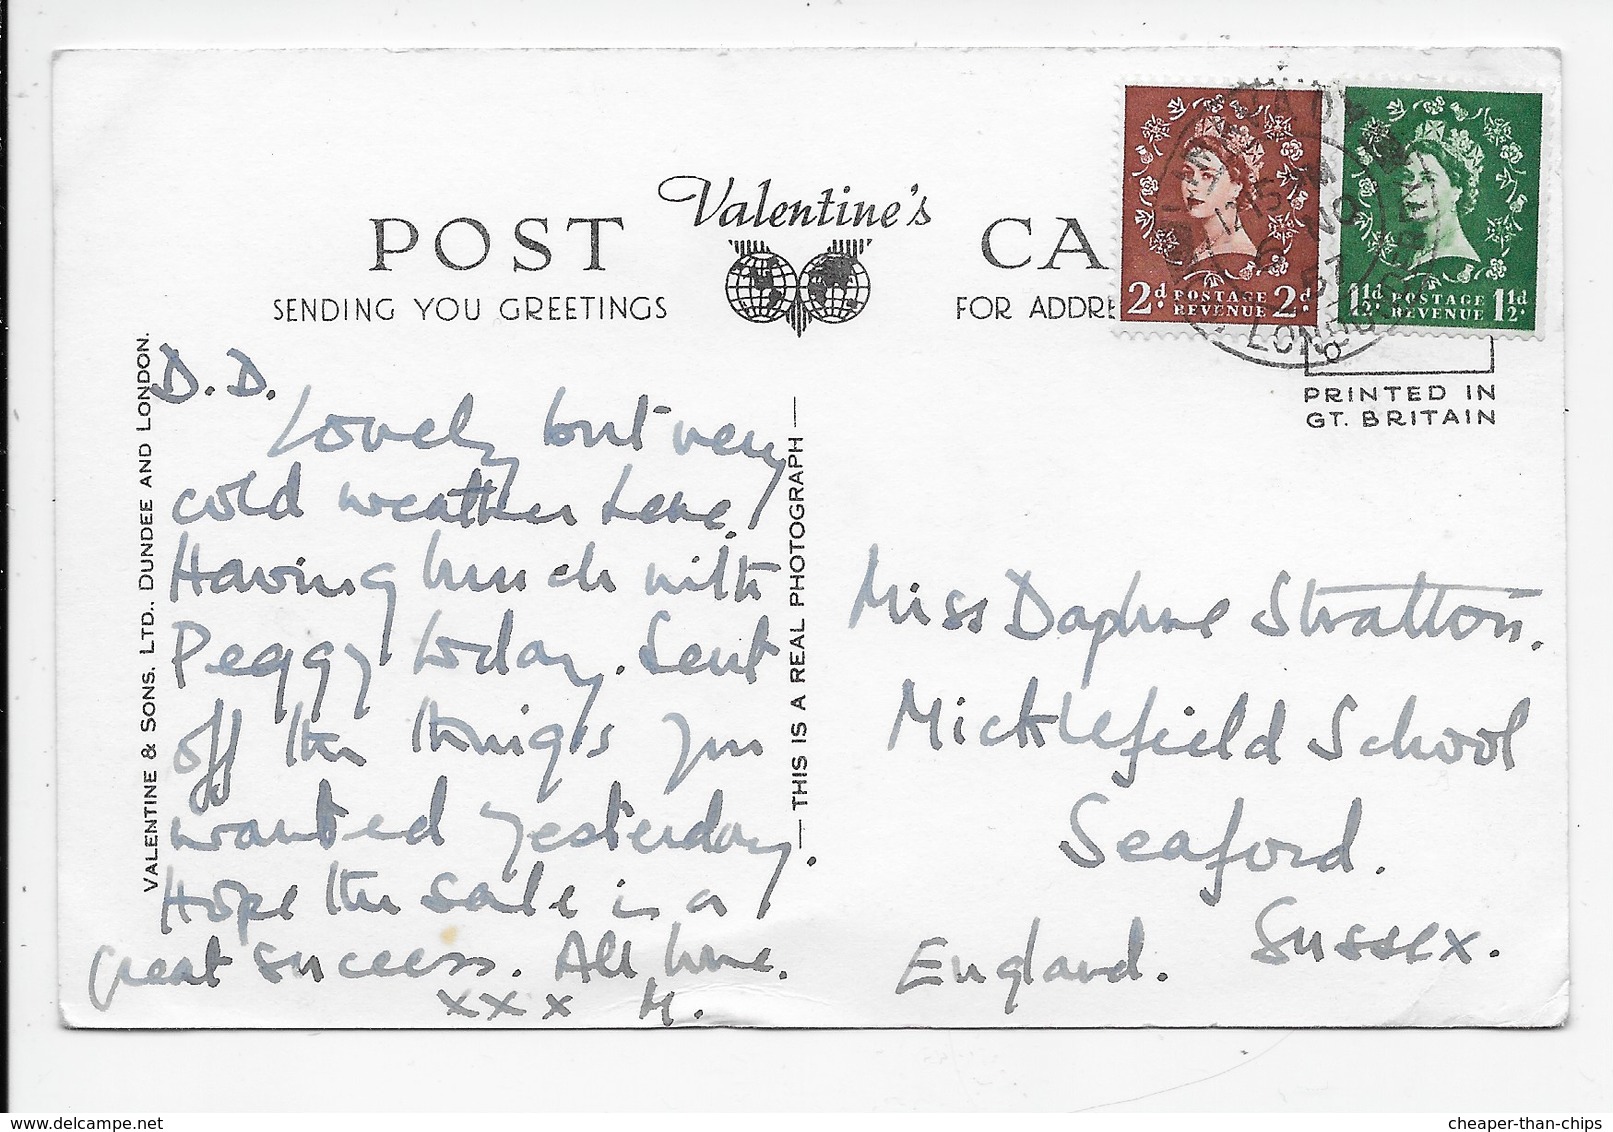 POST Valentine's CA
SENDING YOU GREETINGS
FOR ADDRE
2d. POSTAGE REVENUE 2d.
1½d. POSTAGE REVENUE 1½d.
12 15 PM
6 NO
LONDON
PRINTED IN
GT. BRITAIN
VALENTINE & SONS. LTD., DUNDEE AND LONDON.
D.D.
Lovely but very
cold weather here.
Having lunch with
Peggy today. Sent
off the things you
wanted yesterday.
Hope the sale is a
great success. All love.
xxx M.
— THIS IS A REAL PHOTOGRAPH —
Miss Daphne Stratton.
Micklefield School
Seaford.
Sussex.
England.
cheaper-than-chips